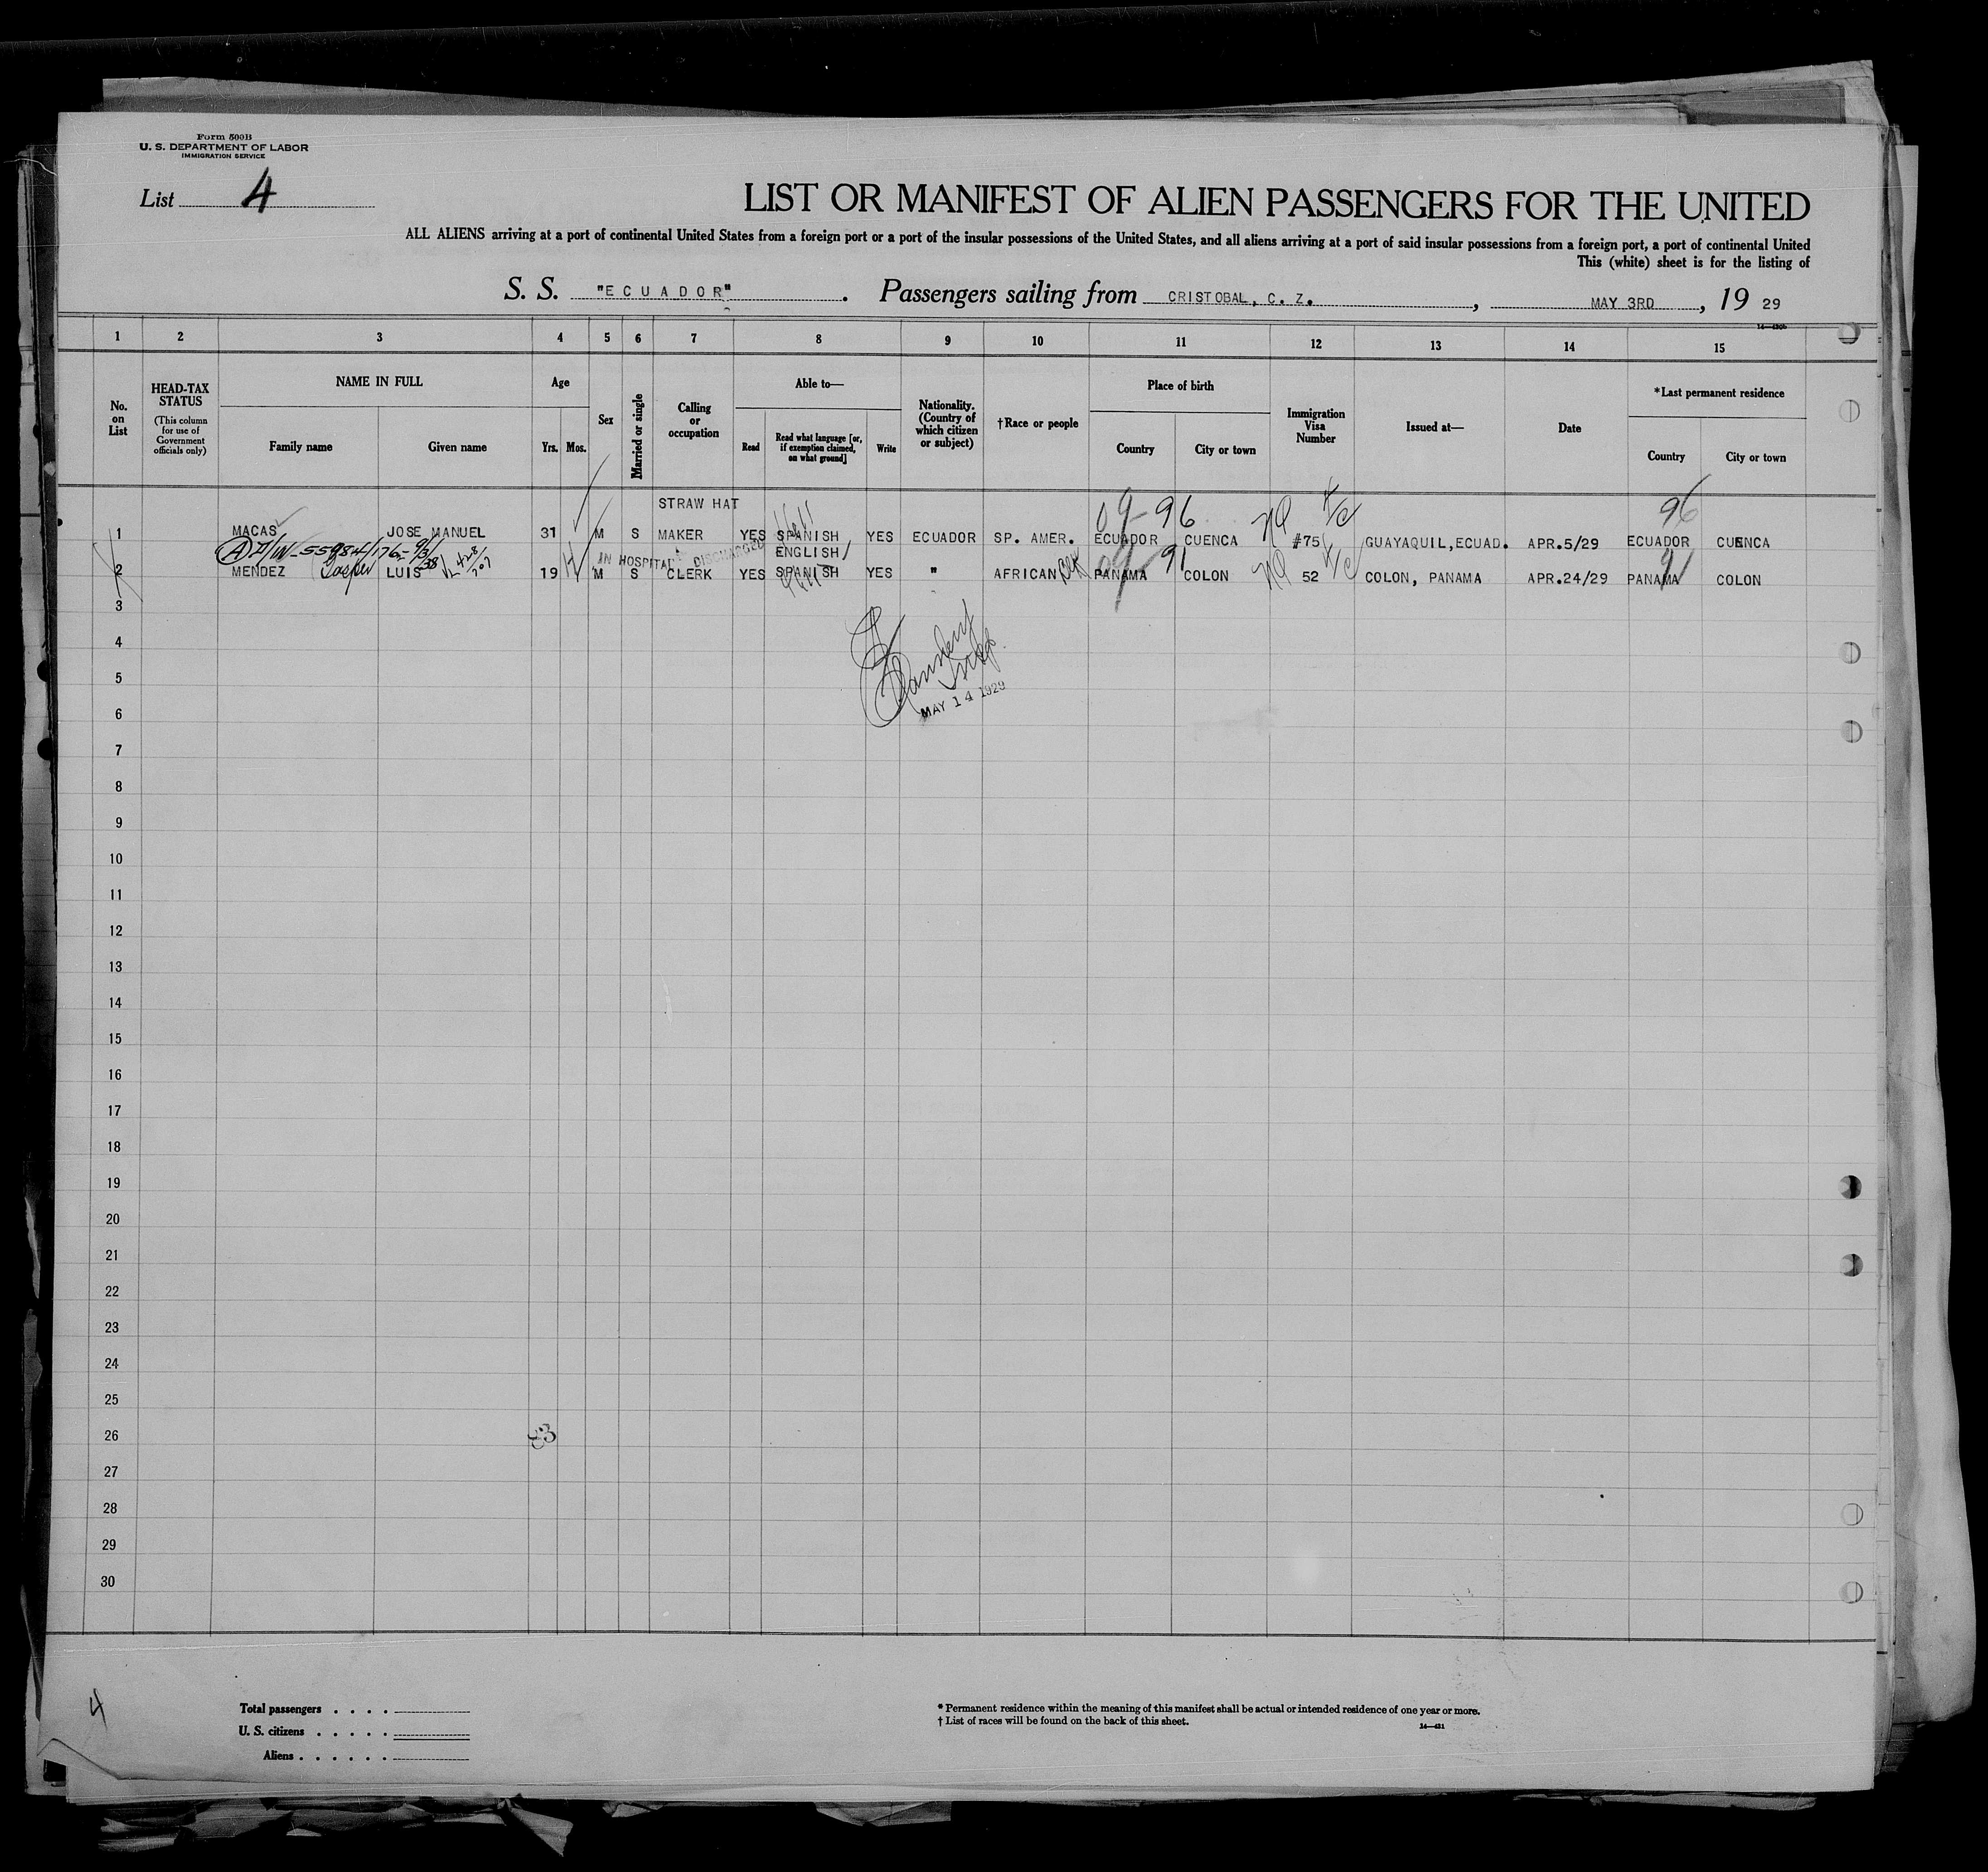 Form 500B
U. S. DEPARTMENT OF LABOR
IMMIGRATION SERVICE
List 4
LIST OR MANIFEST OF ALIEN PASSENGERS FOR THE UNITED
ALL ALIENS arriving at a port of continental United States from a foreign port or a port of the insular possessions of the United States, and all aliens arriving at a port of said insular possessions from a foreign port, a port of continental United
This (white) sheet is for the listing of
S. S. "ECUADOR". Passengers sailing from CRISTOBAL, C. Z., MAY 3RD, 19 29
1 2 3 4 5 6 7 8 9 10 11 12 13 14 15
No. on List
HEAD-TAX STATUS
(This column for use of Government officials only)
NAME IN FULL
Family name Given name
Age
Yrs. Mos.
Sex
Married or single
Calling or occupation
Able to—
Read
Read what language [or, if exemption claimed, on what ground]
Write
Nationality. (Country of which citizen or subject)
†Race or people
Place of birth
Country City or town
Immigration Visa Number
Issued at—
Date
*Last permanent residence
Country City or town
STRAW HAT
09-96 96
1 MACAS JOSE MANUEL 31 M S MAKER YES SPANISH YES ECUADOR SP. AMER. ECUADOR CUENCA #75 GUAYAQUIL,ECUAD. APR.5/29 ECUADOR CUENCA
IN HOSPITAL DISCHARGED
ENGLISH/
91 91
2 MENDEZ LUIS 19 M S CLERK YES SPANISH YES " AFRICAN PANAMA COLON 52 COLON, PANAMA APR.24/29 PANAMA COLON
3
4
5
6
MAY 14 1929
7
8
9
10
11
12
13
14
15
16
17
18
19
20
21
22
23
24
25
26
27
28
29
30
4
Total passengers . . . .
U. S. citizens . . . . .
Aliens . . . . . .
* Permanent residence within the meaning of this manifest shall be actual or intended residence of one year or more.
† List of races will be found on the back of this sheet.
14—431